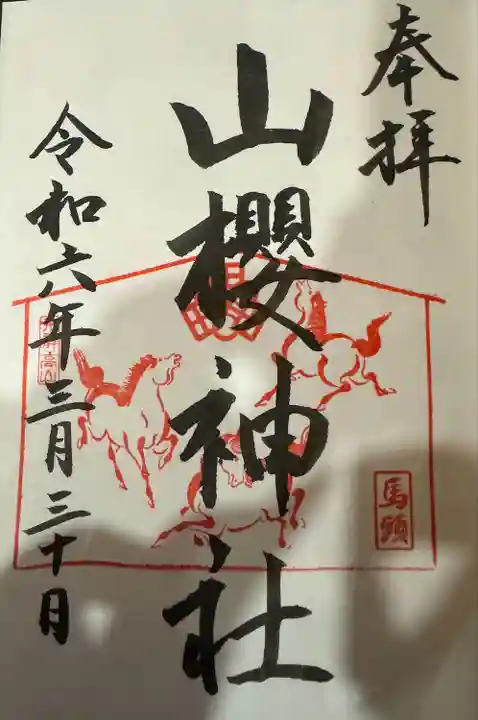 奉拝
山櫻神社
馬頭
令和六年三月三十日